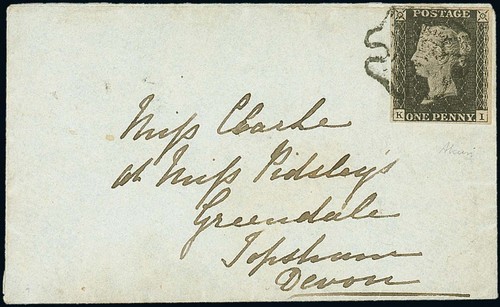 POSTAGE
K I
ONE PENNY
Miss Clarke
at Miss Pidsley's
Greendale
Topsham
Devon